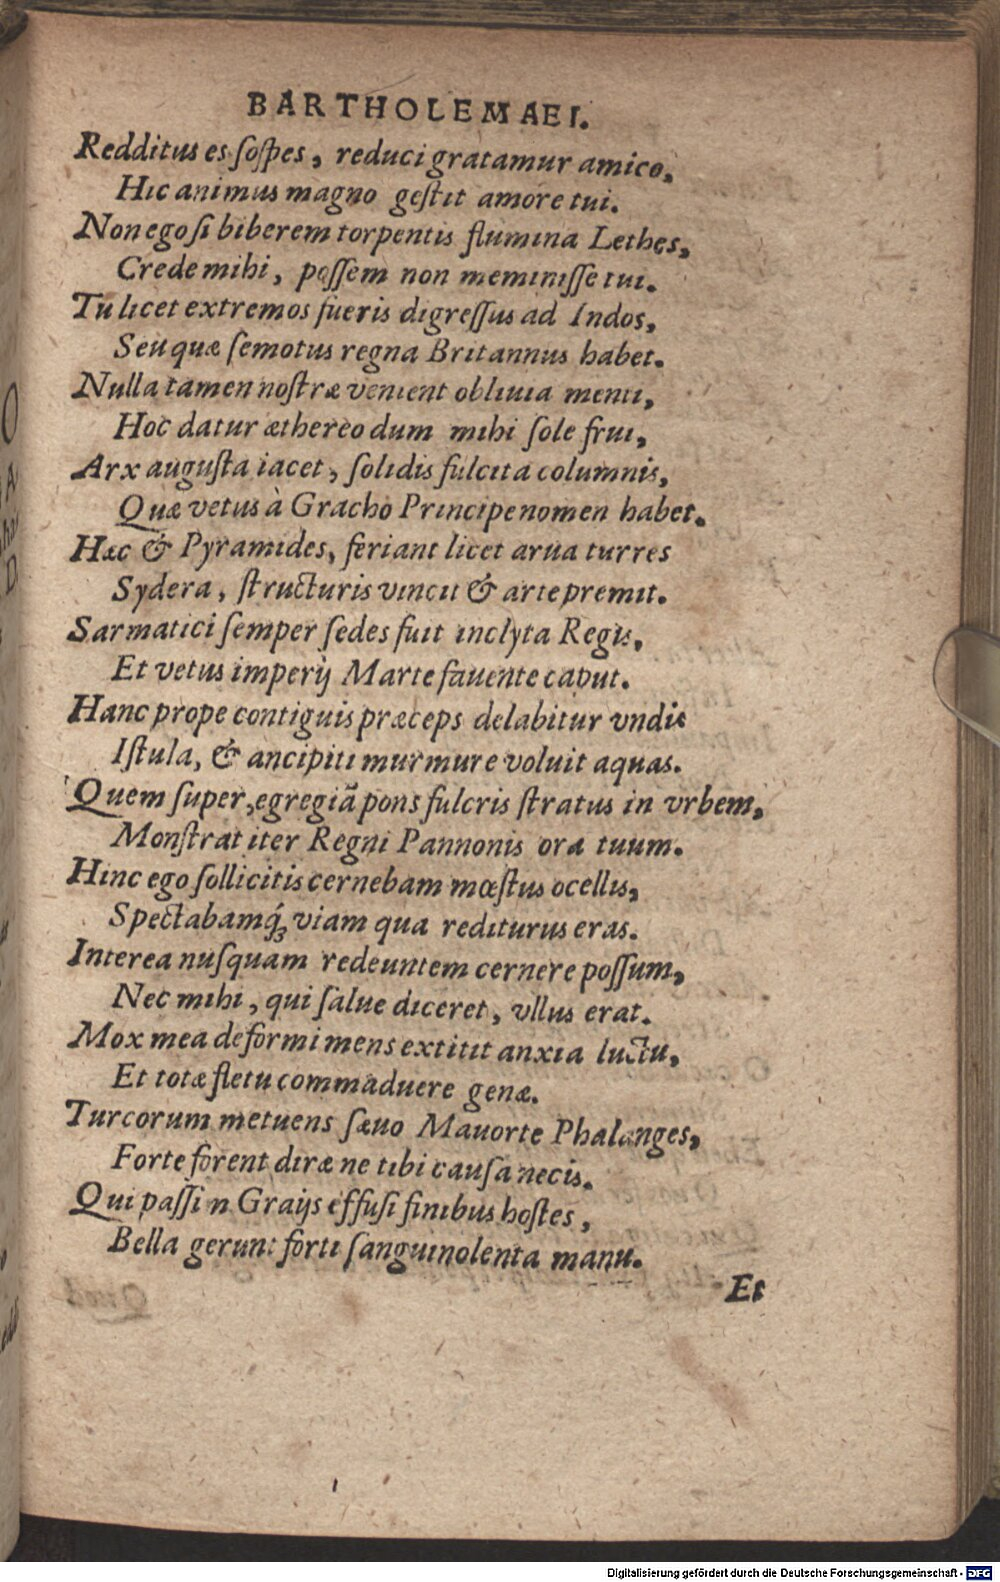 BARTHOLEMAEI.
Redditus es sospes, reduci gratamur amico,
Hic animus magno gestit amore tui.
Non ego si biberem torpentis flumina Lethes,
Crede mihi, possem non meminisse tui.
Tu licet extremos fueris digressus ad Indos,
Seu quæ semotus regna Britannus habet.
Nulla tamen nostræ venient obliuia menti,
Hoc datur æthereo dum mihi sole frui,
Arx augusta iacet, solidis fulcita columnis,
Quæ vetus à Gracho Principe nomen habet.
Hæc & Pyramides, feriant licet arua turres
Sydera, structuris vincit & arte premit.
Sarmatici semper sedes fuit inclyta Regis,
Et vetus imperij Marte fauente caput.
Hanc prope contiguis præceps delabitur vndis
Istula, & ancipiti murmure voluit aquas.
Quem super, egregiã pons fulcris stratus in vrbem,
Monstrat iter Regni Pannonis ora tuum.
Hinc ego sollicitis cernebam mœstus ocellis,
Spectabamq́ʒ viam qua rediturus eras.
Interea nusquam redeuntem cernere possum,
Nec mihi, qui salue diceret, vllus erat.
Mox mea deformi mens extitit anxia luctu,
Et totæ fletu commaduere genæ.
Turcorum metuens sæuo Mauorte Phalanges,
Forte forent diræ ne tibi causa necis.
Qui passi n Graijs effusi finibus hostes,
Bella gerunt forti sanguinolenta manu.
Et
Digitalisierung gefördert durch die Deutsche Forschungsgemeinschaft - DFG